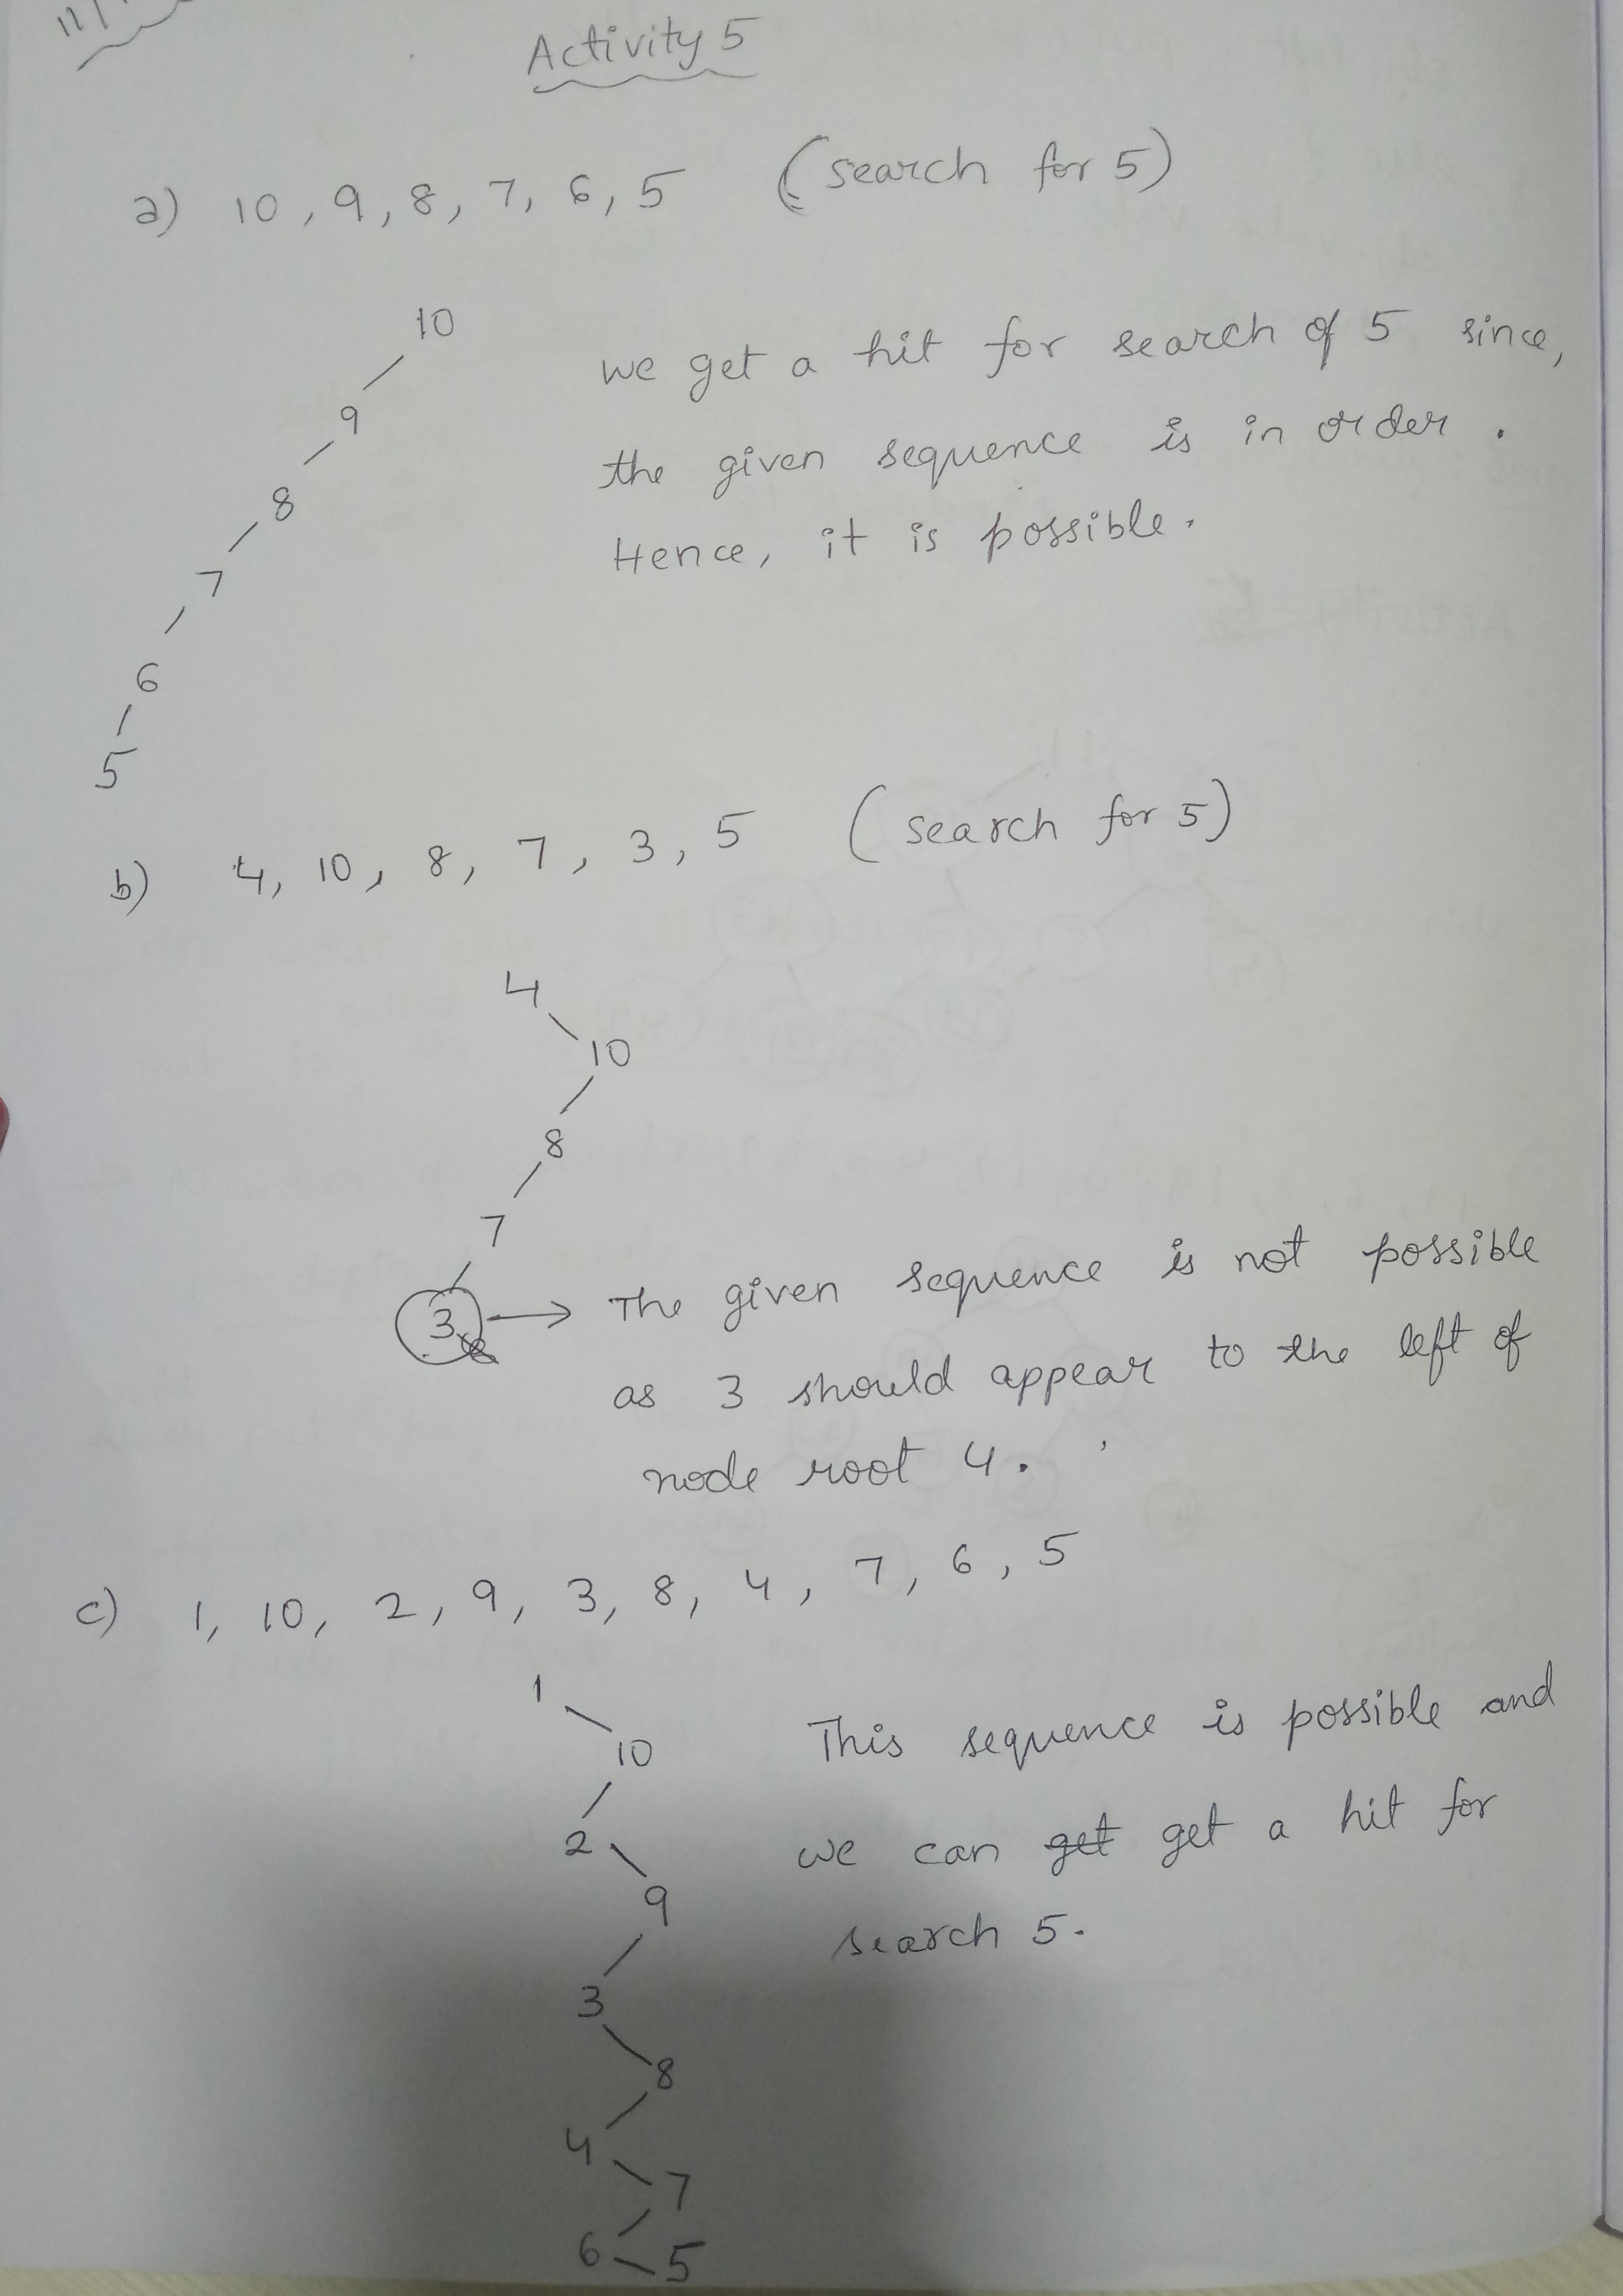 Activity 5
a) 10, 9, 8, 7, 6, 5 (search for 5)
10
9
8
7
6
5
we get a hit for search of 5 since,
the given sequence is in order.
Hence, it is possible.
b) 4, 10, 8, 7, 3, 5 (search for 5)
4
10
8
7
3 → The given sequence is not possible
as 3 should appear to the left of
node root 4.
c) 1, 10, 2, 9, 3, 8, 4, 7, 6, 5
1
10
2
9
3
8
4
7
6 5
This sequence is possible and
we can get get a hit for
search 5.